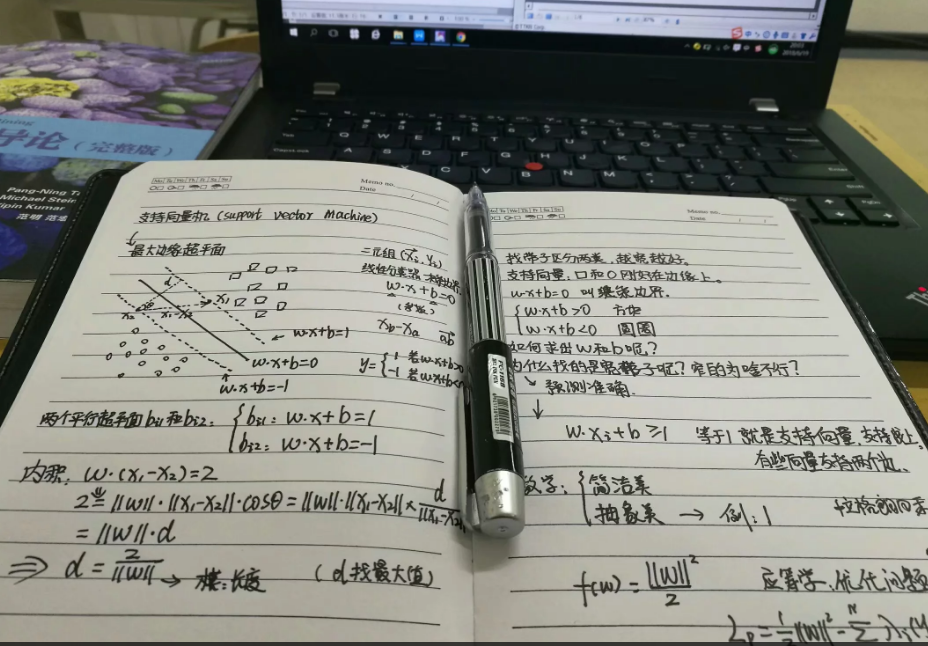 导论（完整版）
Pang-Ning T
Michael Stein
Vipin Kumar
支持向量机 (support vector Machine)
最大边缘超平面
二元组 (xi, yi)
w·x+b=0
xb-xa
d
x1
x2
x1-x2
w·x+b=1
w·x+b=0
w·x+b=-1
y={1 若w·x+b>0
-1 若w·x+b<0
两个平行超平面bs1和bs2:
{bs1: w·x+b=1
bs2: w·x+b=-1
内积: w·(x1-x2)=2
2=||w||·||x1-x2||·cosθ=||w||·||x1-x2||×d/||x1-x2||
=||w||·d
⇒ d=2/||w|| → 模:长度 (d找最大值)
Memo no.
Date
找带子区分两类,越宽越好。
支持向量,口和O刚好在边缘上。
w·x+b=0 叫决策边界.
{w·x+b>0 方块
w·x+b<0 圆圈
如何求出w和b呢?
为什么找的是宽带子呢?窄的为啥不行?
预测准确.
w·xi+b≥1 等于1就是支持向量,支持最上
有些向量支持两个边.
数学:{简洁美
抽象美 → 例:1
f(w)=||w||²/2
运筹学.优化问题
Lp=½||w||²-Σ λi(y